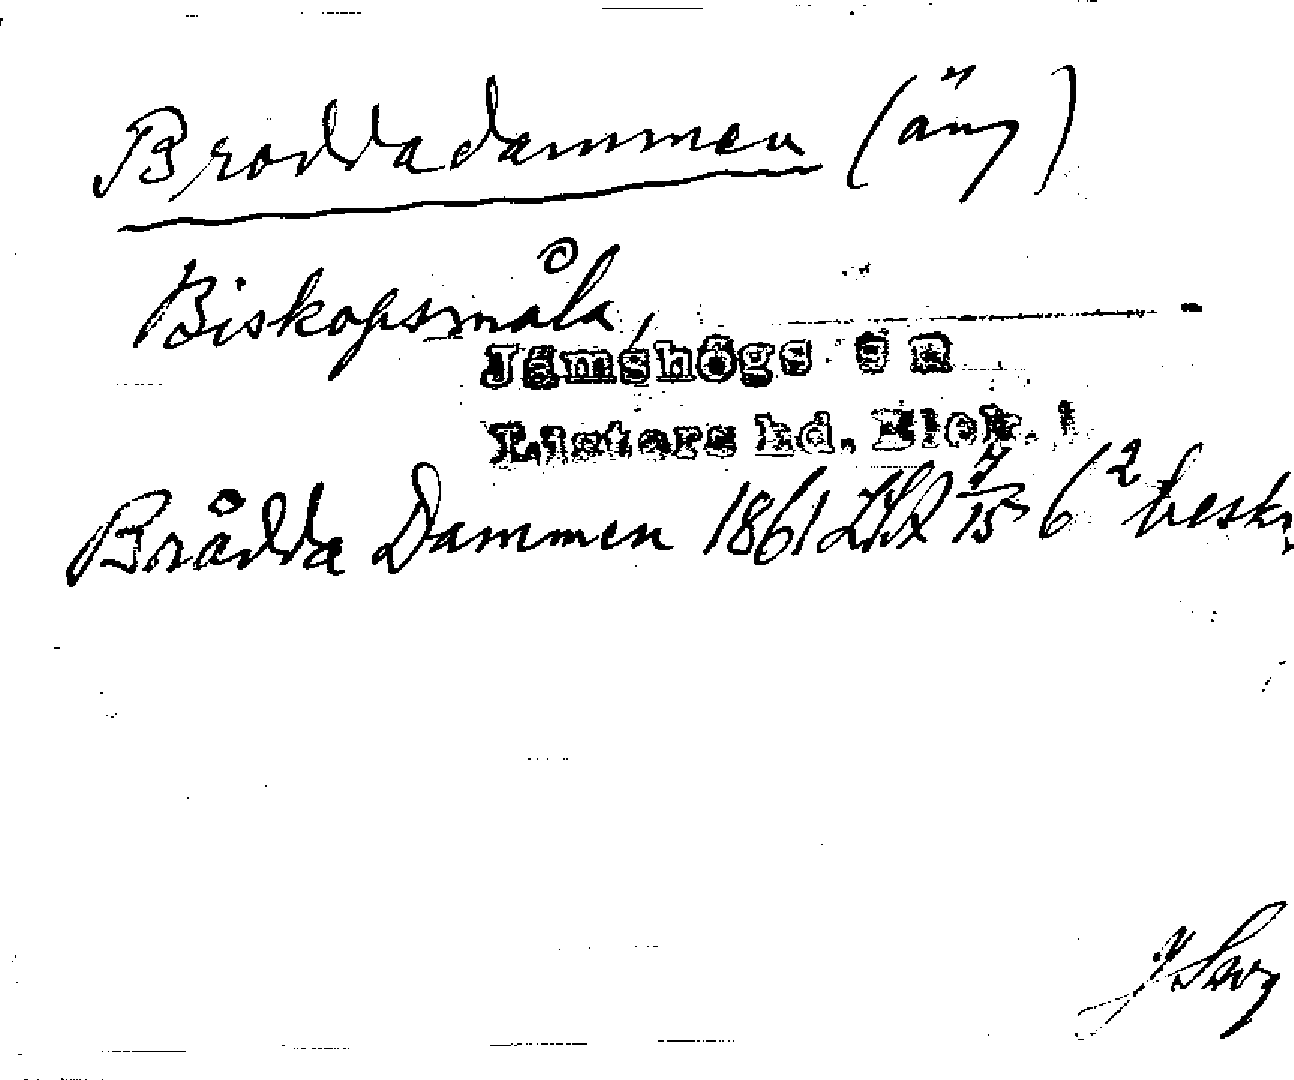 Broddadammen (äng)
Biskopsmåla,
Jämshögs sn
Listers hd. Blek. l
Brådda Dammen 1861 LSA 7/15 6² beskr.